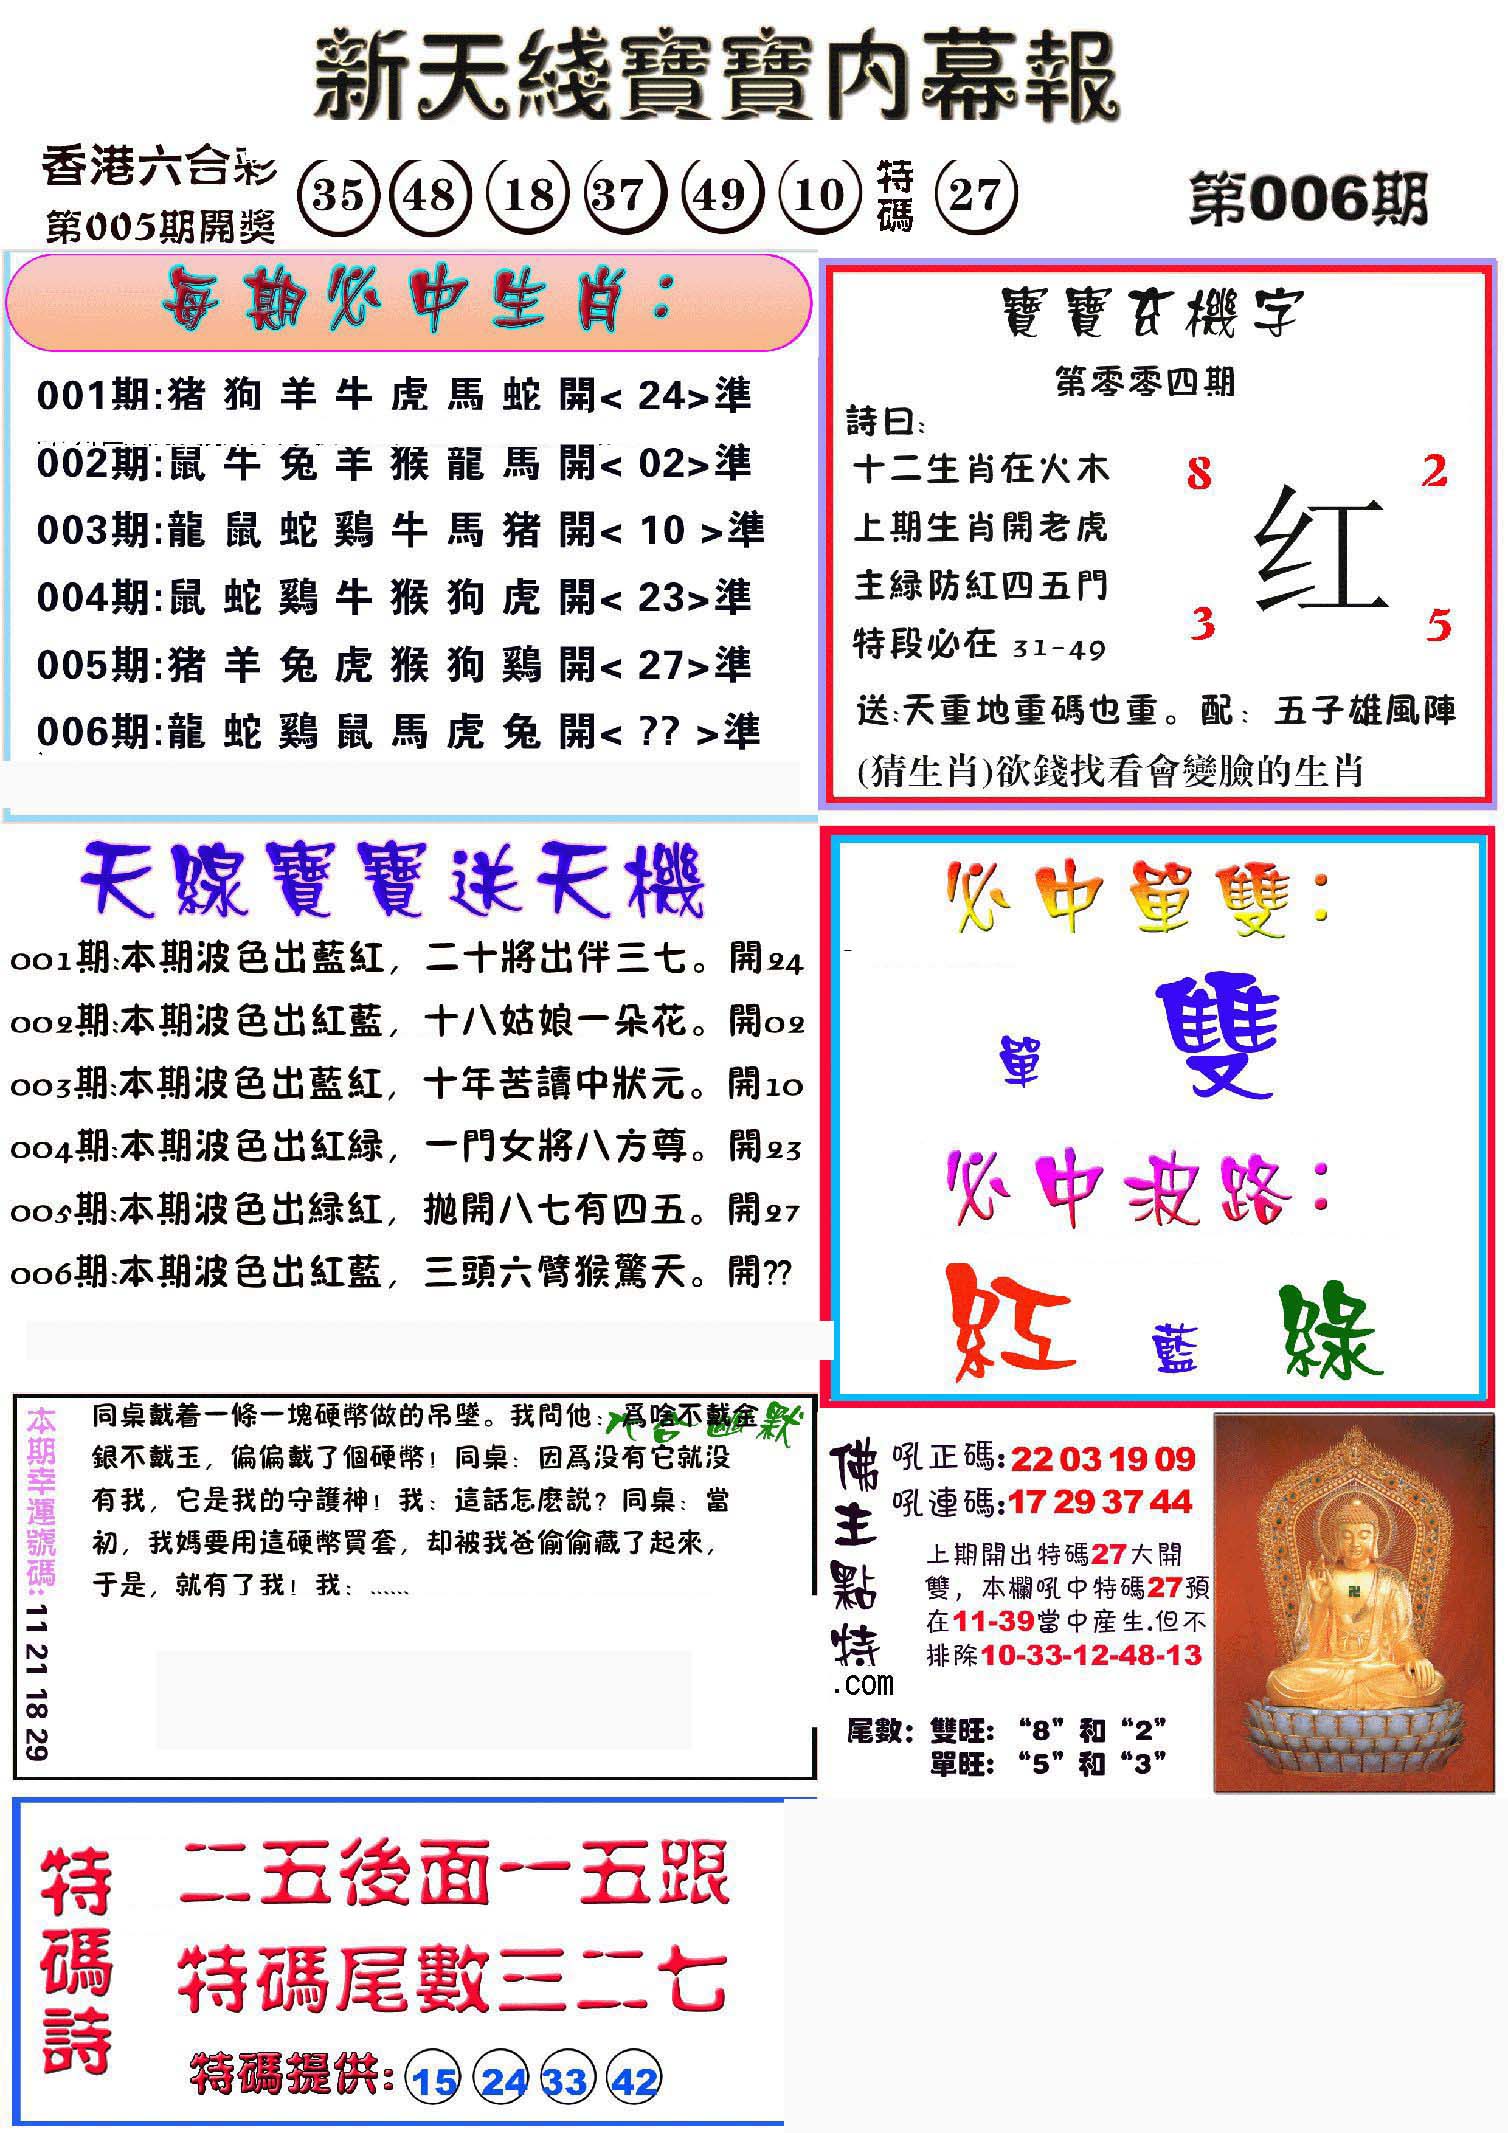 新天綫寶寶内幕報
香港六合彩
第005期開獎
35 48 18 37 49 10 特碼 27
第006期
每期必中生肖：
001期:猪 狗 羊 牛 虎 馬 蛇 開< 24>準
002期:鼠 牛 兔 羊 猴 龍 馬 開< 02>準
003期:龍 鼠 蛇 鷄 牛 馬 猪 開< 10 >準
004期:鼠 蛇 鷄 牛 猴 狗 虎 開< 23>準
005期:猪 羊 兔 虎 猴 狗 鷄 開< 27>準
006期:龍 蛇 鷄 鼠 馬 虎 兔 開< ?? >準
寶寶玄機字
第零零四期
詩曰:
十二生肖在火木
上期生肖開老虎
主緑防紅四五門
特段必在 31-49
8 2
红
3 5
送:天重地重碼也重。配：五子雄風陣
(猜生肖)欲錢找看會變臉的生肖
天線寶寶送天機
001期:本期波色出藍紅，二十將出伴三七。開24
002期:本期波色出紅藍，十八姑娘一朵花。開02
003期:本期波色出藍紅，十年苦讀中狀元。開10
004期:本期波色出紅緑，一門女將八方尊。開23
005期:本期波色出緑紅，拋開八七有四五。開27
006期:本期波色出紅藍，三頭六臂猴驚天。開??
必中單雙：
單 雙
必中波路：
紅 藍 綠
本期幸運號碼:11 21 18 29
六合幽默
同桌戴着一條一塊硬幣做的吊墜。我問他：爲啥不戴金
銀不戴玉，偏偏戴了個硬幣！同桌：因爲没有它就没
有我，它是我的守護神！我：這話怎麽説？同桌：當
初，我媽要用這硬幣買套，却被我爸偷偷藏了起來，
于是，就有了我！我：……
佛主點特
.com
吼正碼:22 03 19 09
吼連碼:17 29 37 44
上期開出特碼27大開
雙，本欄吼中特碼27預
在11-39當中産生.但不
排除10-33-12-48-13
尾數：雙旺：“8”和“2”
單旺：“5”和“3”
特碼詩
二五後面一五跟
特碼尾數三二七
特碼提供: 15 24 33 42